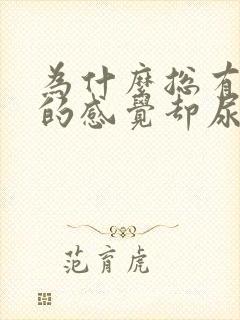 為什麼總有
的感覺却尿
范育虎